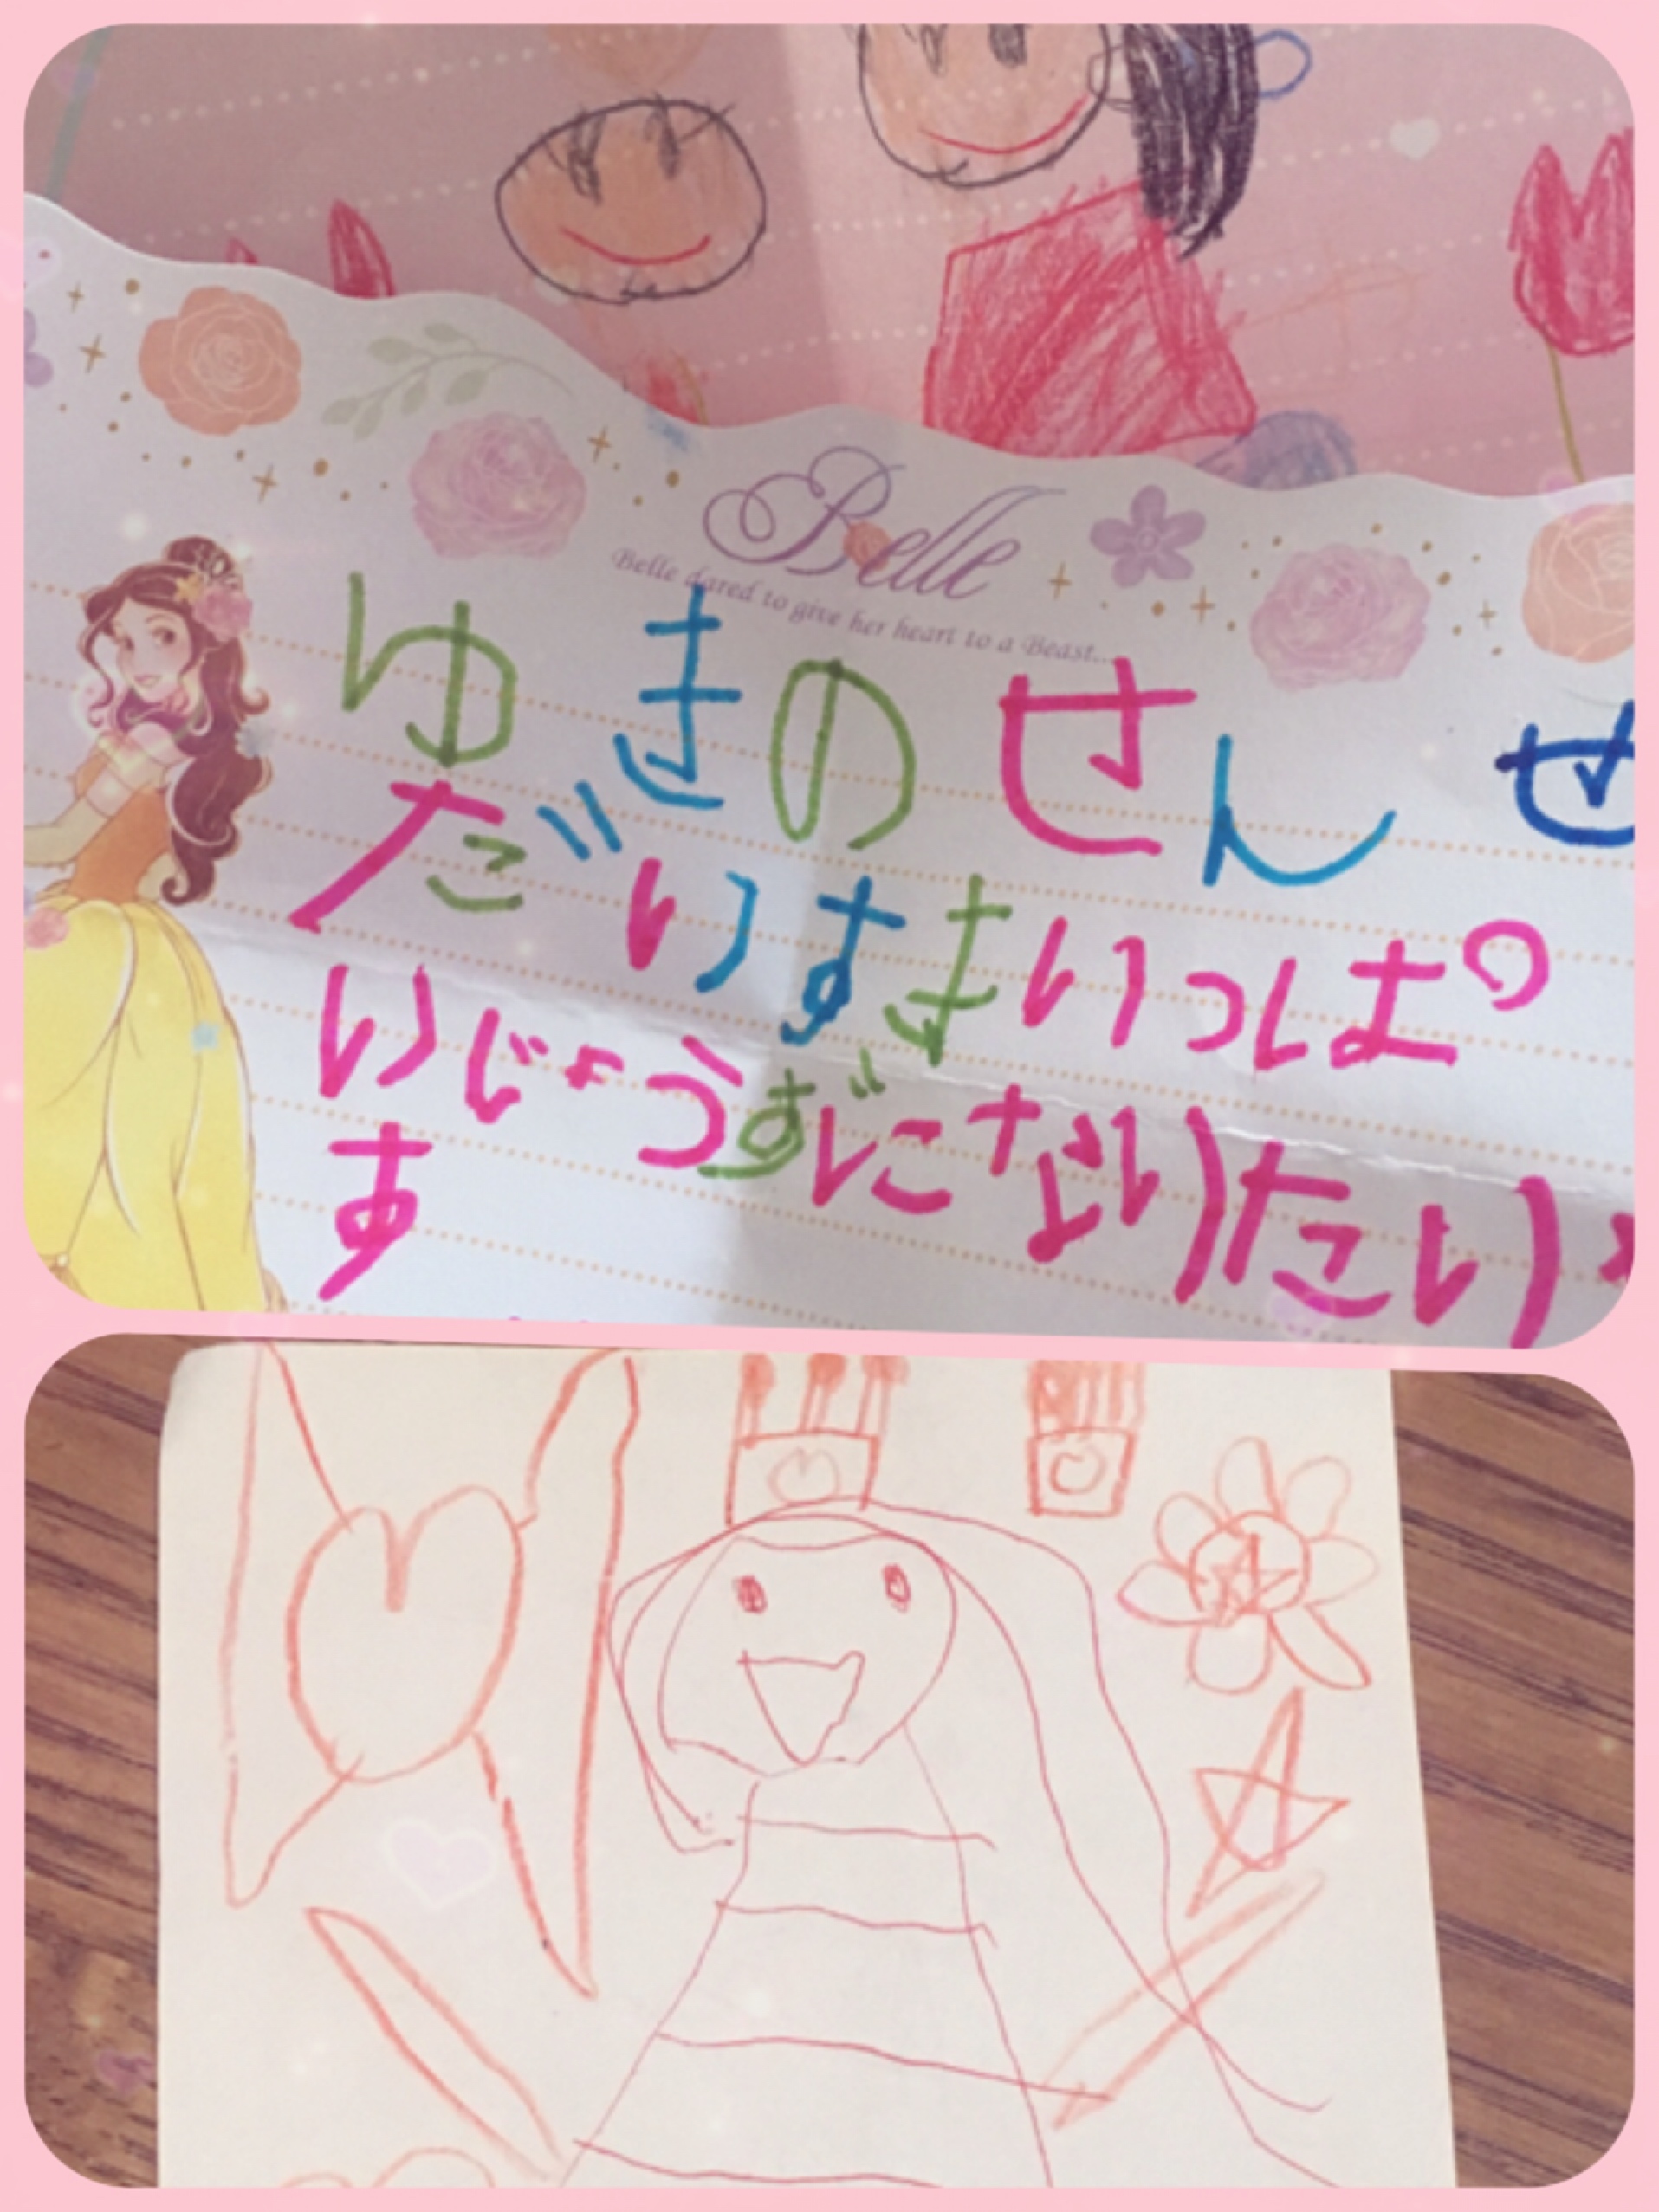 Belle
Belle dared to give her heart to a Beast...
ゆきのせんせ
だいすきいっぱ
いじょうずになりたい
す